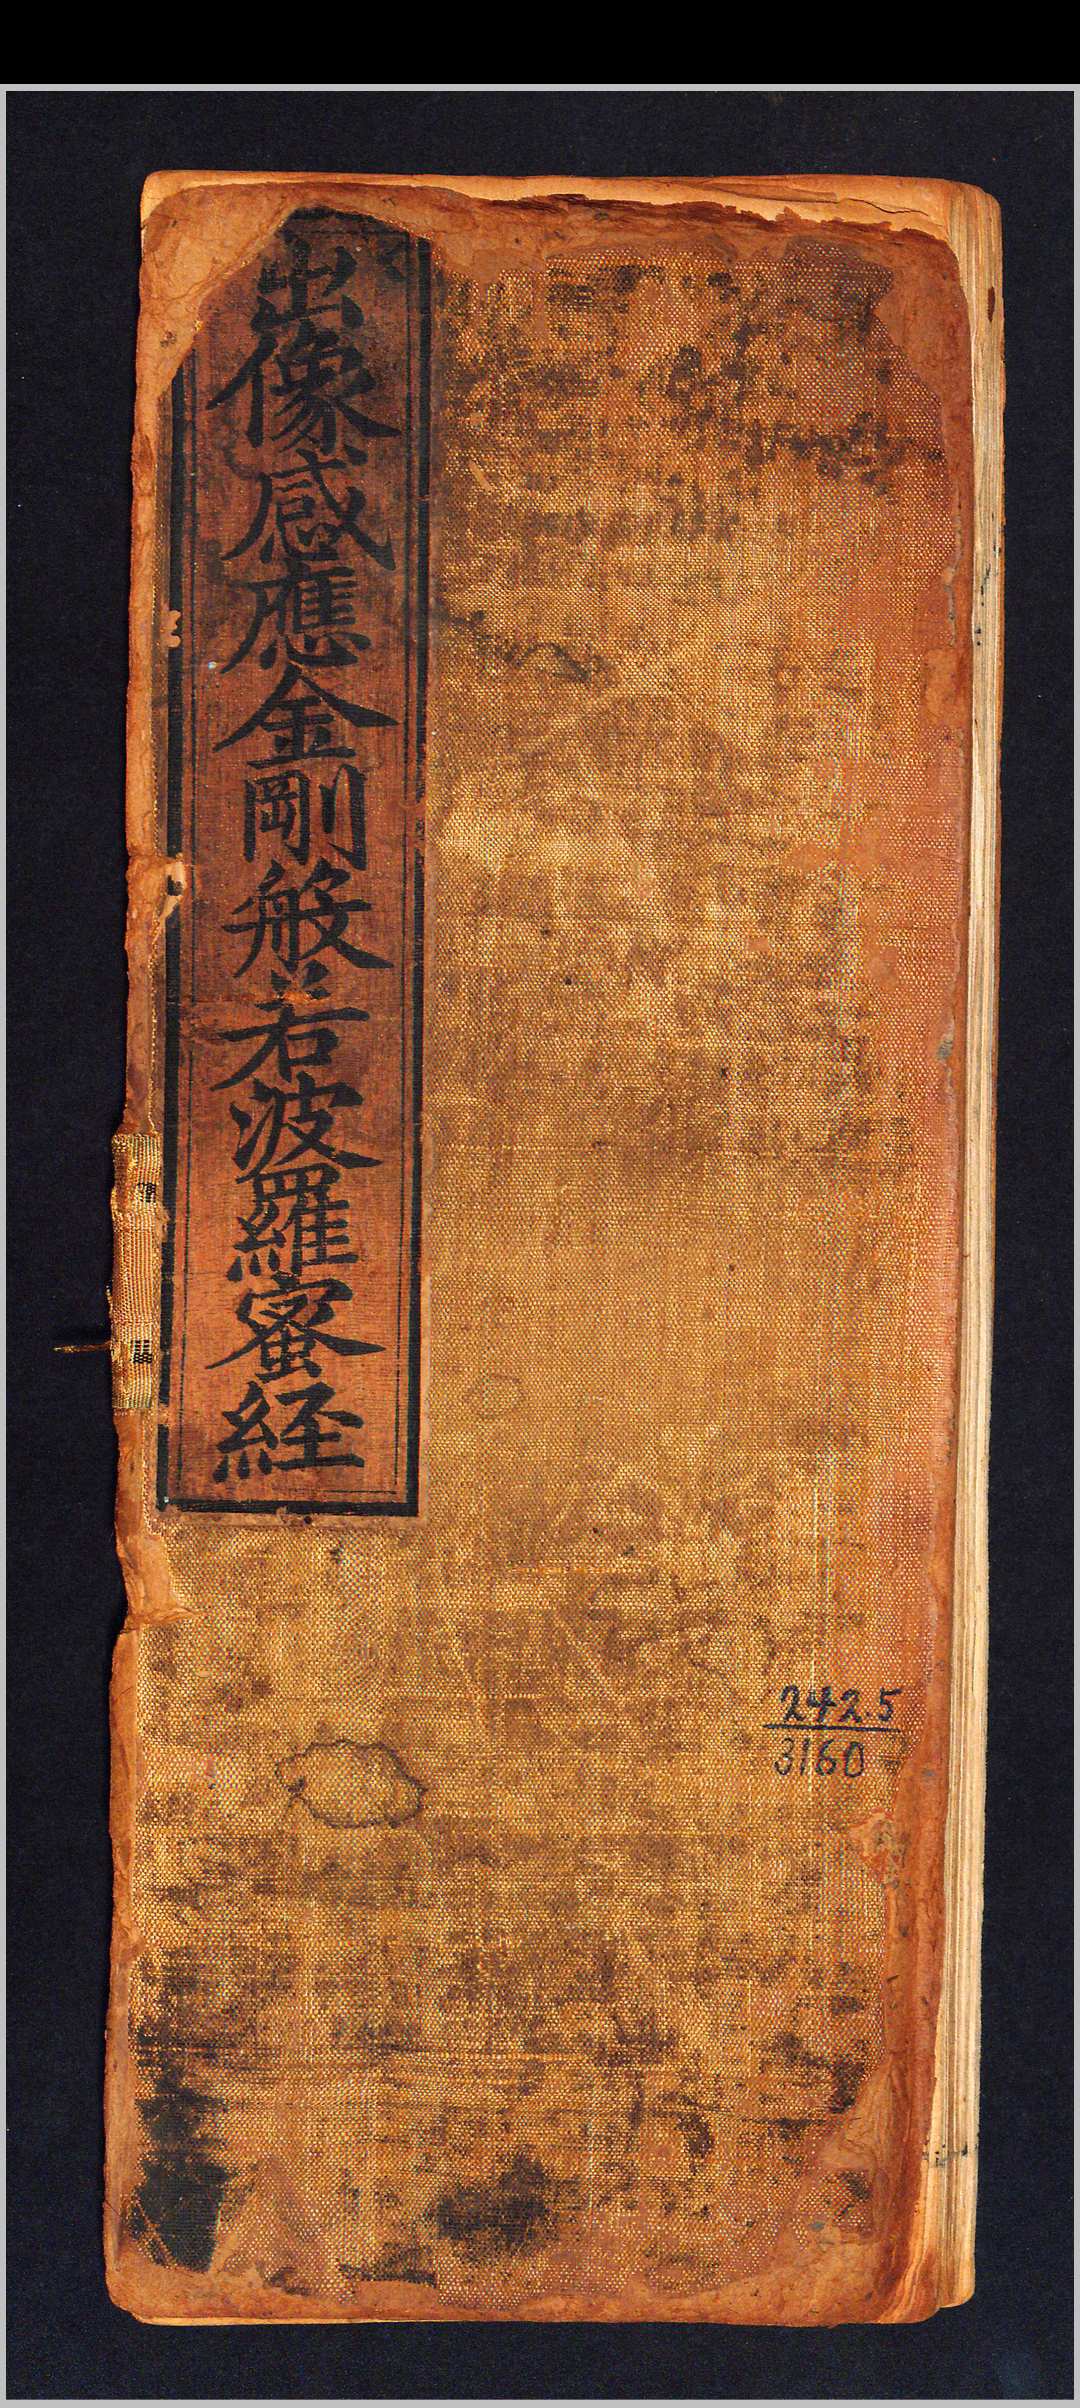 出像感應金剛般若波羅蜜経
242.5
3160